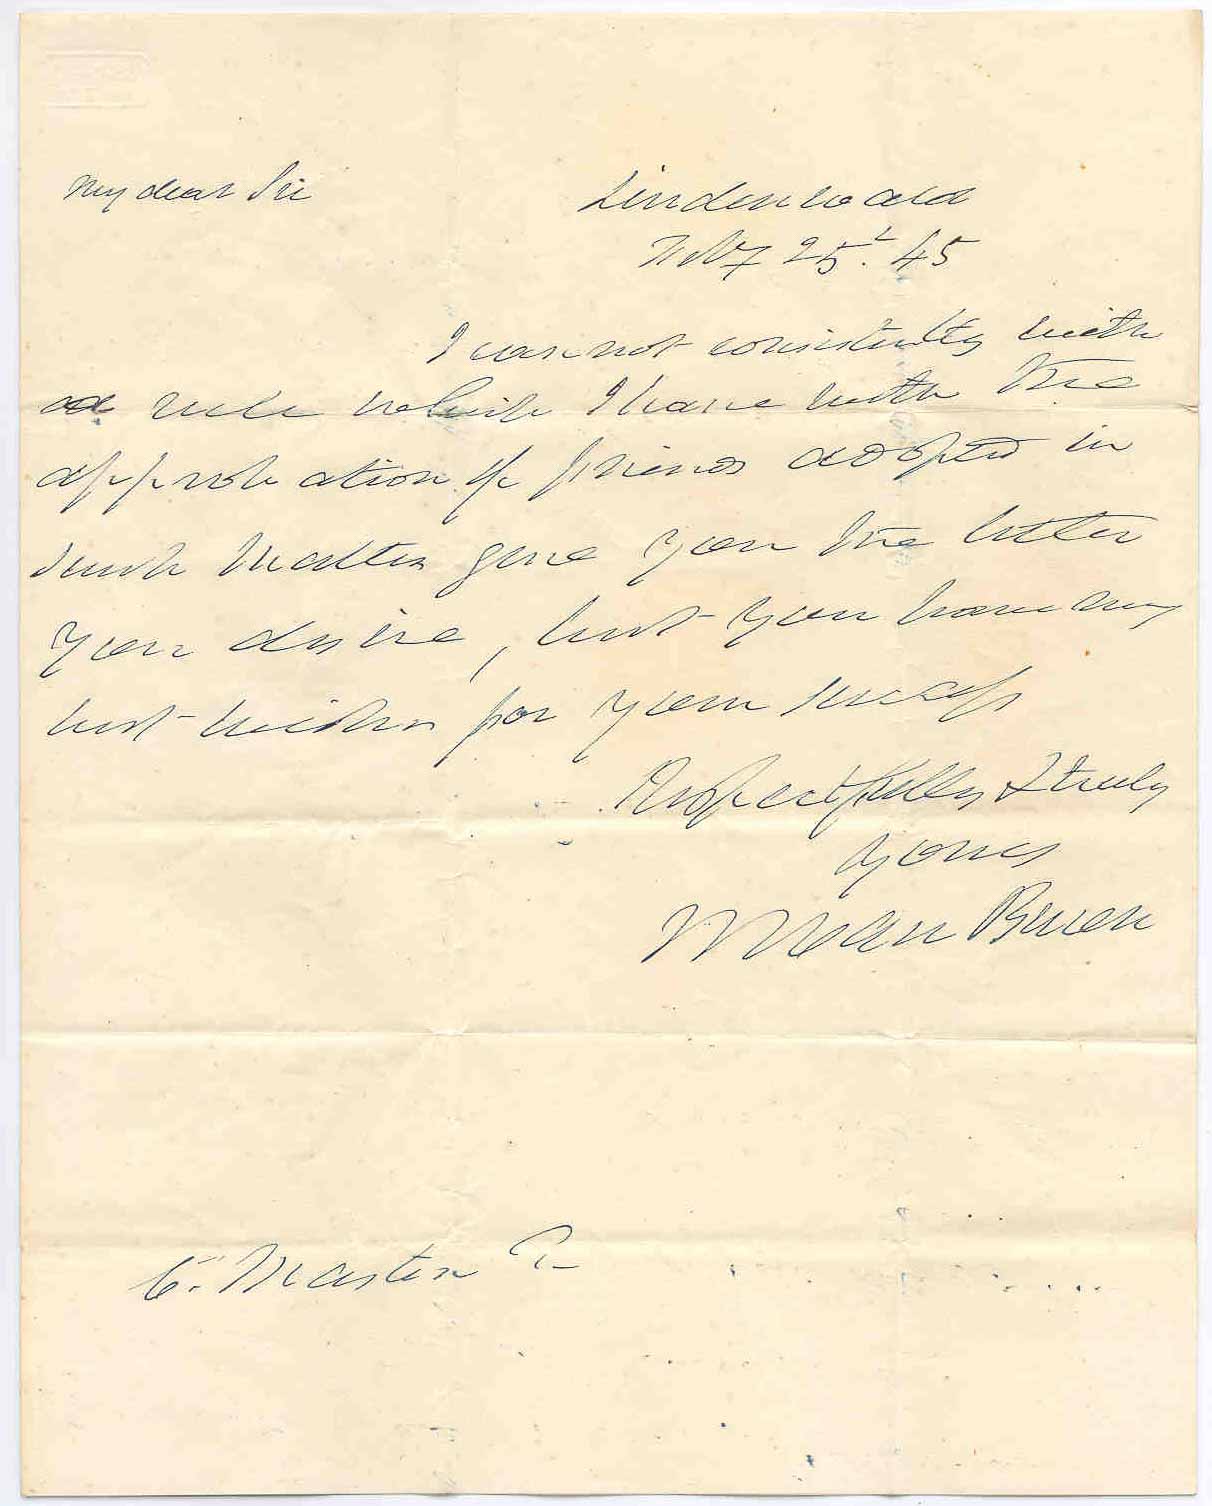 My dear Sir
Lindenwald
Nov 25t. 45
I cannot consistently with
a rule which I have with the
approbation of friends adopted in
such matters give you the letter
you desire, but you have my
best wishes for your success
Respectfully & truly
yours
M Van Buren
C. Masten